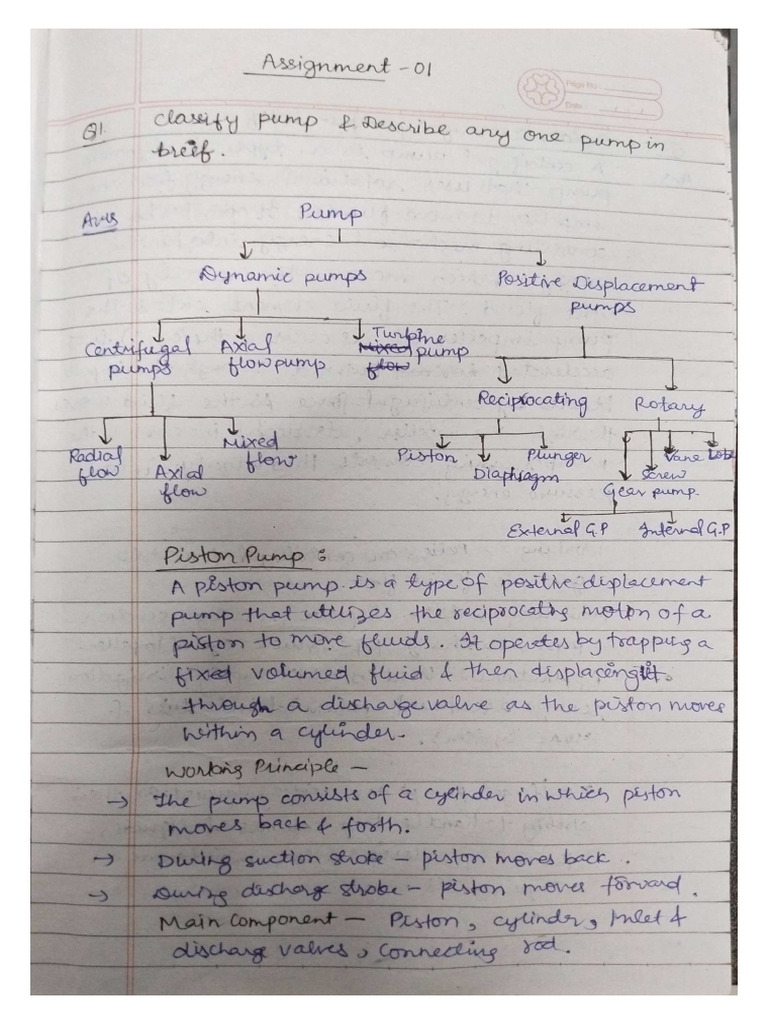 Assignment - 01
Page No.
Date
Q1. Classify pump & Describe any one pump in
breif.
Ans Pump
Dynamic pumps Positive Displacement
pumps
Centrifugal Axial Turbine
pumps flow pump Mixed pump
flow
Reciprocating Rotary
Radial Mixed Piston Plunger Vane Lobe
flow Axial flow Diaphragm Screw
flow Gear pump.
External G.P Internal G.P
Piston Pump :
A piston pump is a type of positive displacement
pump that utilizes the reciprocating motion of a
piston to move fluids. It operates by trapping a
fixed volumed fluid & then displacing it.
through a discharge valve as the piston moves
within a cylinder.
Working Principle —
→ The pump consists of a cylinder in which piston
moves back & forth.
→ During suction stroke — piston moves back.
→ During discharge stroke — piston moves forward.
Main Component — Piston, cylinder, Inlet &
discharge valves, Connecting rod.